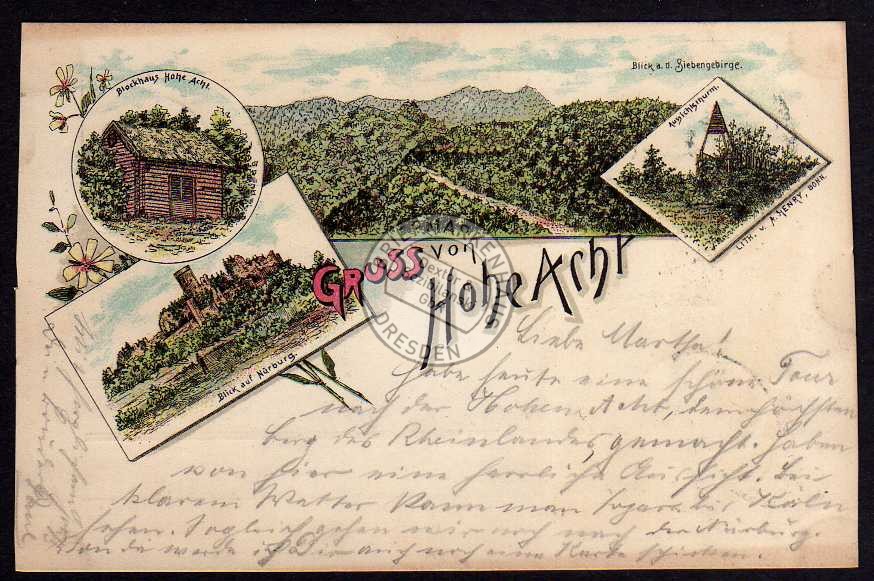 Blockhaus Hohe Acht.
Blick a. d. Siebengebirge.
Aussichtsthurm.
LITH. v. A. HENRY, BONN.
Blick auf Nürburg.
GRUSS von Hohe Acht
BRIEFMARKENHAUS
DRESDEN
Liebe Martha!
Habe heute eine schöne Tour
nach der Hohen Acht, dem höchsten
Berg des Rheinlandes, gemacht. Haben
von hier eine herrliche Aussicht. Bei
klarem Wetter kann man sogar bis Köln
sehen. Sogleich gehen wir noch nach der Nürburg.
Von da werde ich Dir auch noch eine Karte schicken.